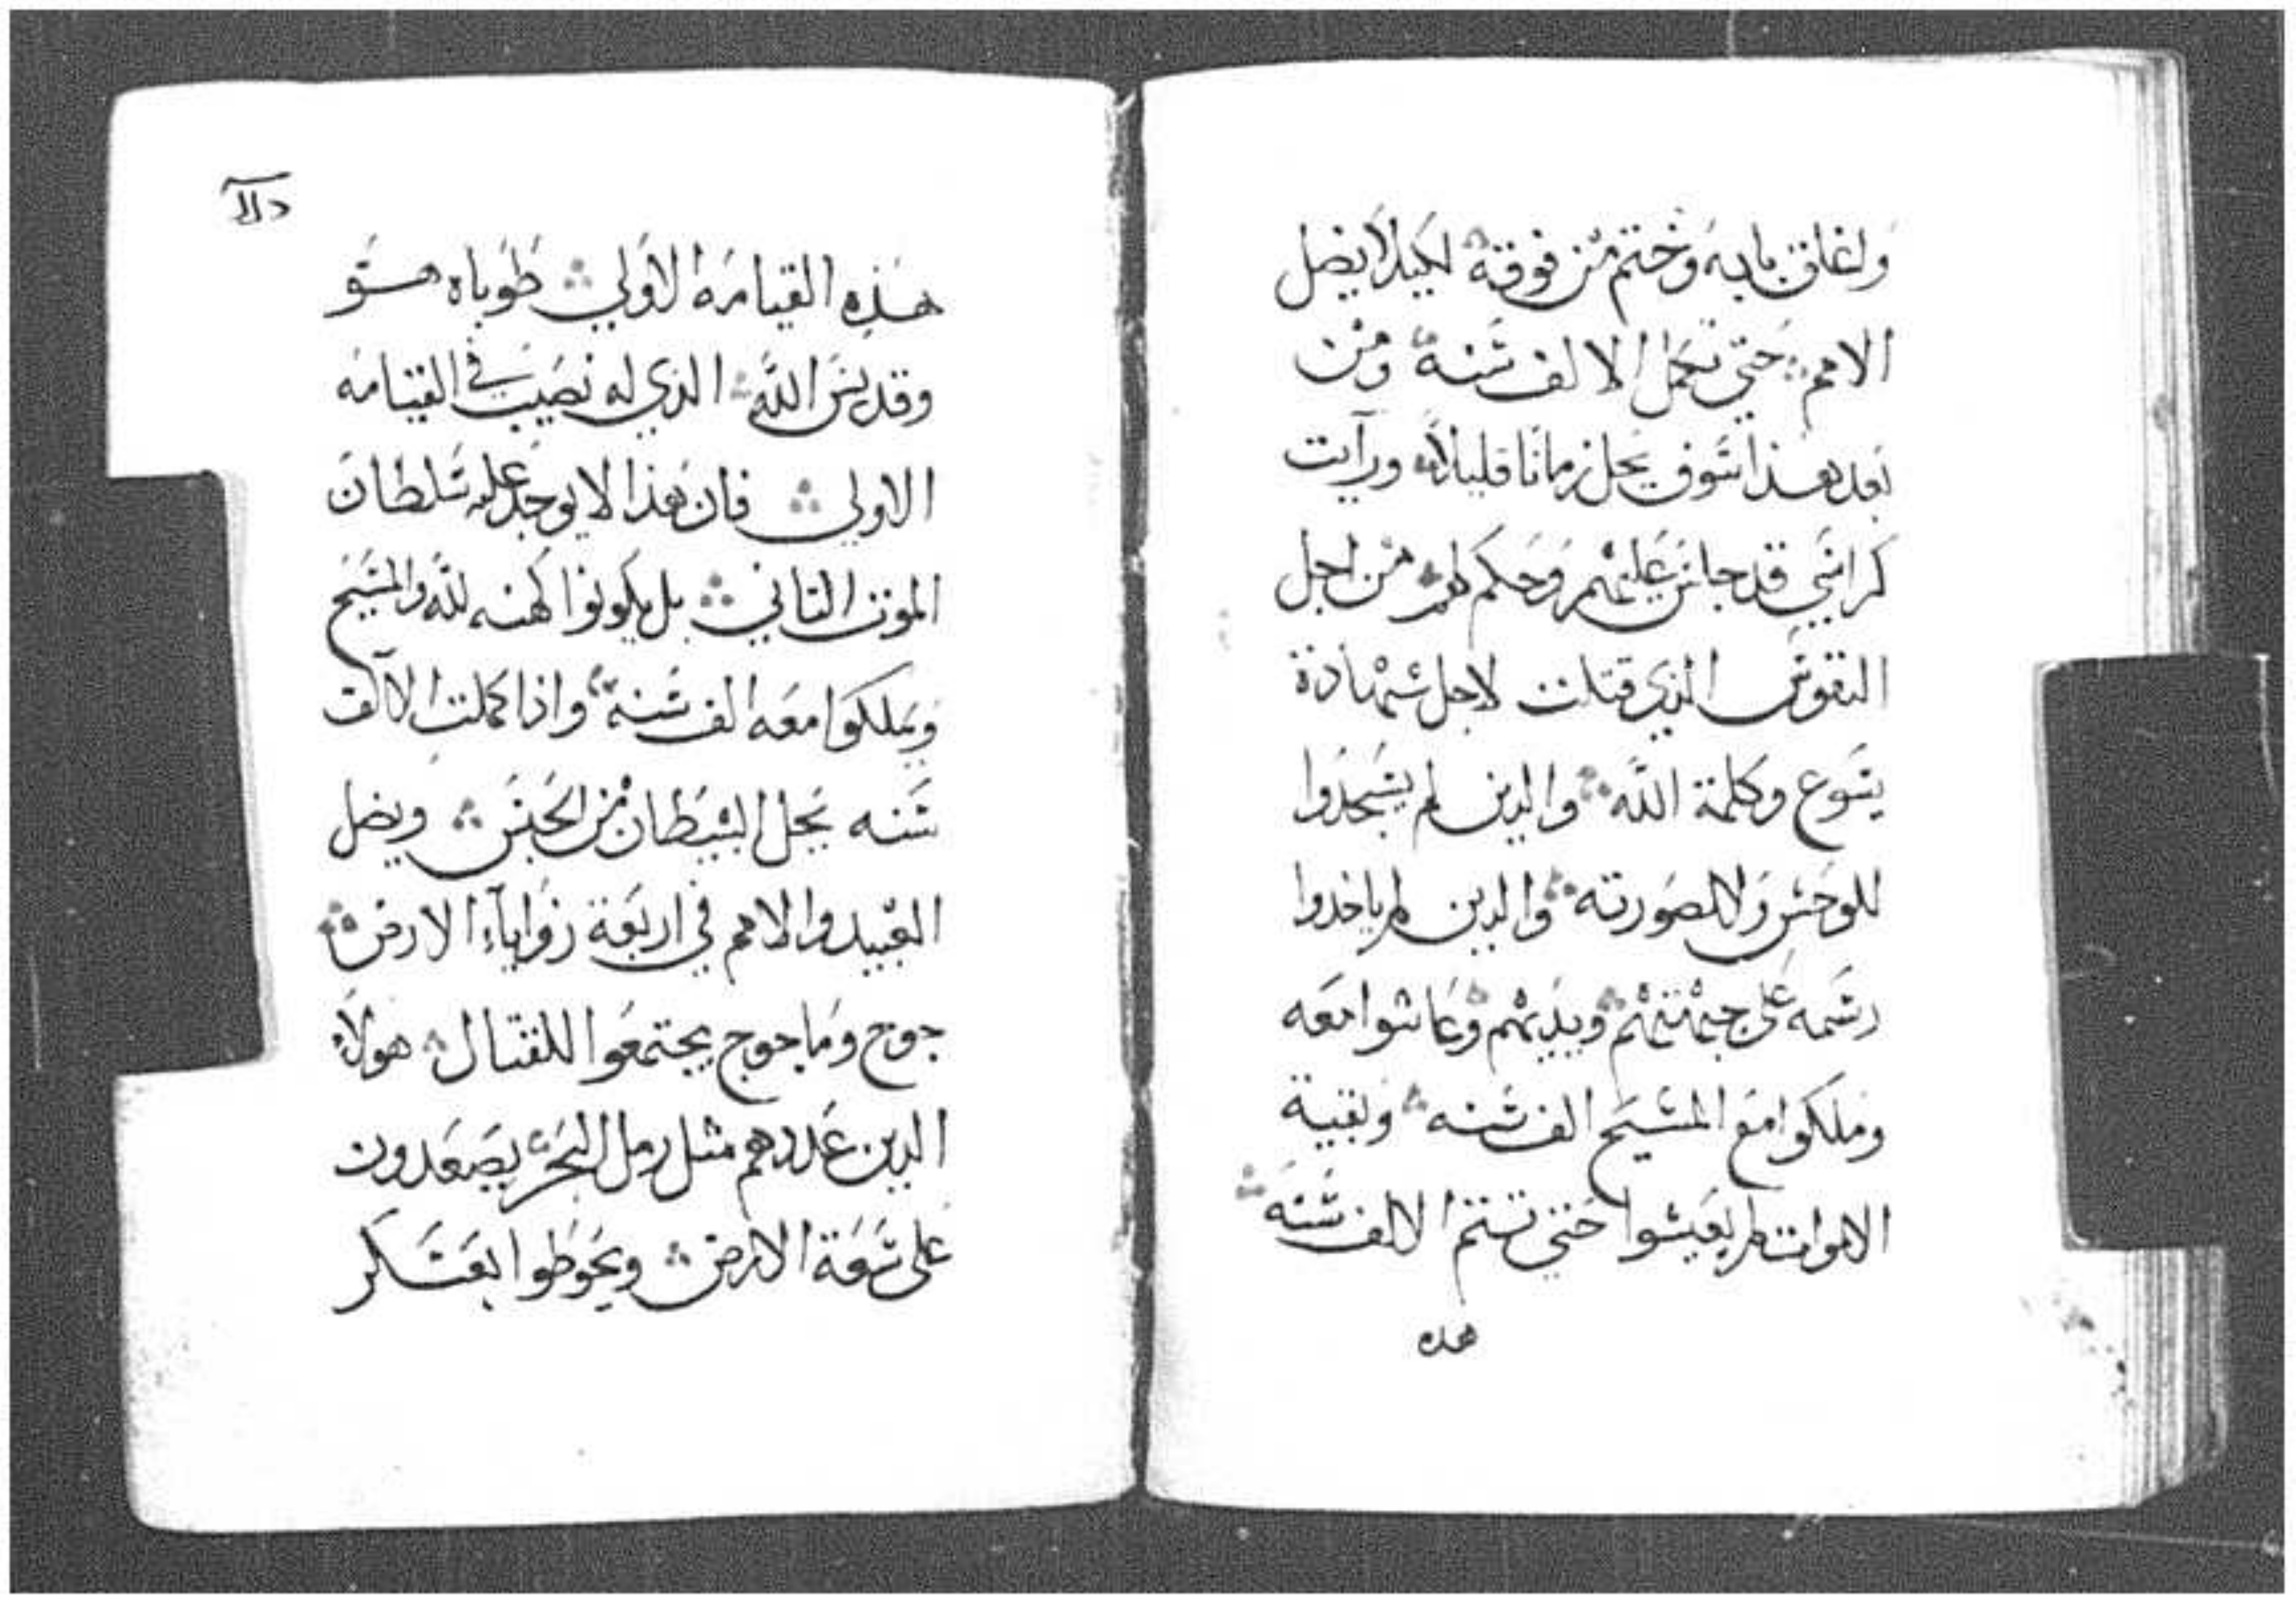 واغلق بابه وختم من فوقه لكيلا يضل
الامم حتي تكمل الالف سنة ومن
بعد هذا سوف يحل زمانا قليلا ورآيت
كراسي قد جلس عليهم وحكم لهم من اجل
النفوس الذي قتلت لاجل شهادة
يسوع وكلمة الله والدين لم يسجدوا
للوحش ولا لصورته والدين لم ياخدوا
رشمه على جبهتهم ويديهم وعاشوا معه
وملكوا مع المسيح الف سنه وبقية
الاموات لم يعيشوا حتي تستتم الالف سنه
هده
هذه القيامه الاولي طوباه هو
وقديس الله الذي له نصيب في القيامه
الاولي فان هذا لا يوجد عليه سلطان
الموت التاني بل يكونوا كهنه لله والمسيح
ويملكوا معه الف سنة واذا كملت الالف
سنه يحل الشيطان من الحبس ويضل
العبيد والامم في اربعة زواياء الارض
جوج وماجوج يجتمعوا للقتال هولاء
الدين عددهم مثل رمل البحر يصعدون
على سعة الارض ويحوطوا بعسكر